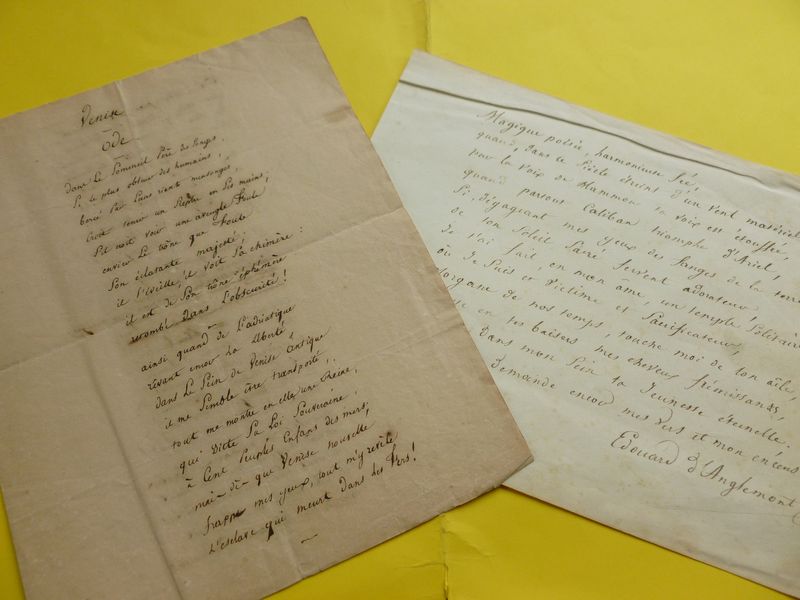 Venise
Ode
dans le Sommeil Père des songes,
Si le plus obscur des humains,
bercé par leurs riants mensonges,
Croit tenir un Sceptre en ses mains,
S'il croit voir une aveugle foule
envier le trône que foule
Son éclatante majesté:
il s'éveille, il voit sa chimère:
il est de son trône éphémère
retombé dans l'obscurité!
ainsi quand de l'adriatique
rêvant encor la liberté
dans le Sein de Venise antique
il me Semble être transporté,
tout me montre en elle une Reine,
qui dicte Sa Loi Souveraine,
à Cent Peuples Enfans des mers;
mais dès que Venise nouvelle
frappe mes yeux, tout m'y révèle
L'esclave qui meurt dans les fers!
Magique poésie, harmonieuse fée,
quand, dans ce Siècle éteint d'un vent matériel
pour la voix de Mammon ta voix est étouffée,
quand partout Caliban triomphe d'Ariel,
Si, dégageant mes yeux des fanges de la terre
de ton Soleil Sacré fervent adorateur,
Je t'ai fait, en mon âme, un temple Solitaire
où je Suis et Victime et Sacrificateur,
Morgane de nos temps, touche moi de ton aîle,
en tes baisers mes cheveux frémissants,
dans mon Sein ta Jeunesse éternelle.
demande encor mes vers et mon encens
Edouard d'Anglemont